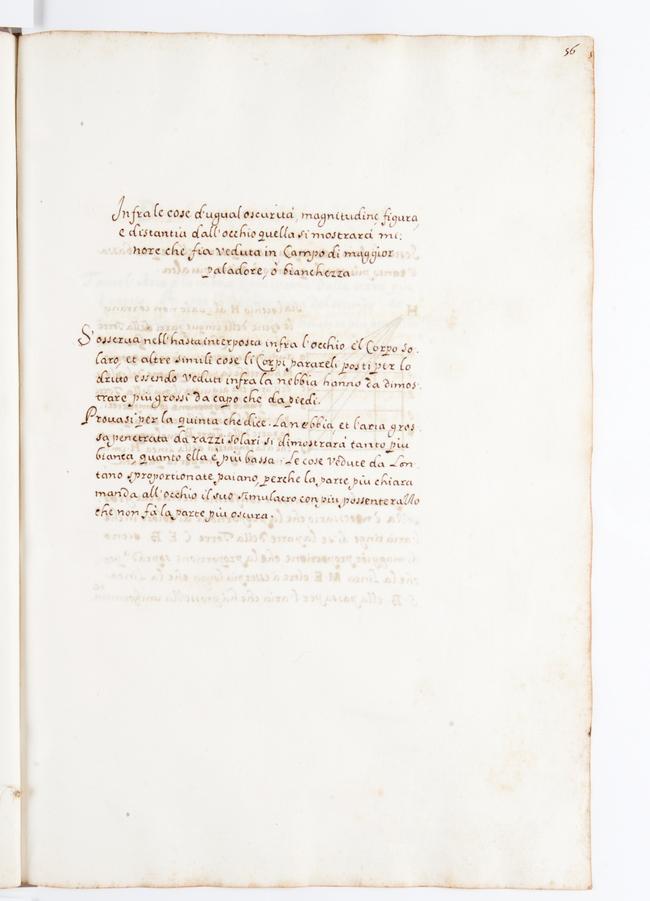 56
Infra le cose d'ugual oscurità, magnitudine, figura,
e distantia dall'occhio quella si mostrarà mi:
nore che fia veduta in Campo di maggior
paladore, ò bianchezza
S'osserva nell'hasta interposta infra l'occhio, el Corpo So-
laro, et altre simili cose li Corpi parareli posti per lo
dritto essendo veduti infra la nebbia hanno da dimos-
trare piu grossi da capo che da piedi.
Provasi per la quinta che dice. La nebbia et l'aria gros-
sa penetrata da razzi solari si dimostrarà tanto piu
bianca, quanto ella è piu bassa. Le cose vedute da Lon-
tano sproportionate paiano, perche la parte piu chiara
manda all'occhio il suo simulacro con piu possente razzo
che non fà la parte piu oscura.